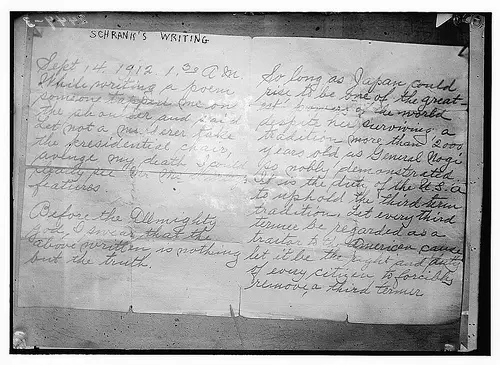 SCHRANK'S WRITING
Sept 14. 1912. 1.30 A.M.
While writing a poem
someone tapped me on
the shoulder and said
Let not a murderer take
the presidential chair,
avenge my death. I could
see
features.
Before the Almighty
God, I swear that the
above written is nothing
but the truth.
So long as Japan could
rise to be one of the great-
est of the world
despite her surviving a
tradition more than 2000
years old as General Nogi
so nobly demonstrated
it is the duty of the U.S.A
to uphold the third term
tradition. Let every third
termer be regarded as a
traitor to the American cause
let it be the right and duty
of every citizen to forcibly
remove a third termer